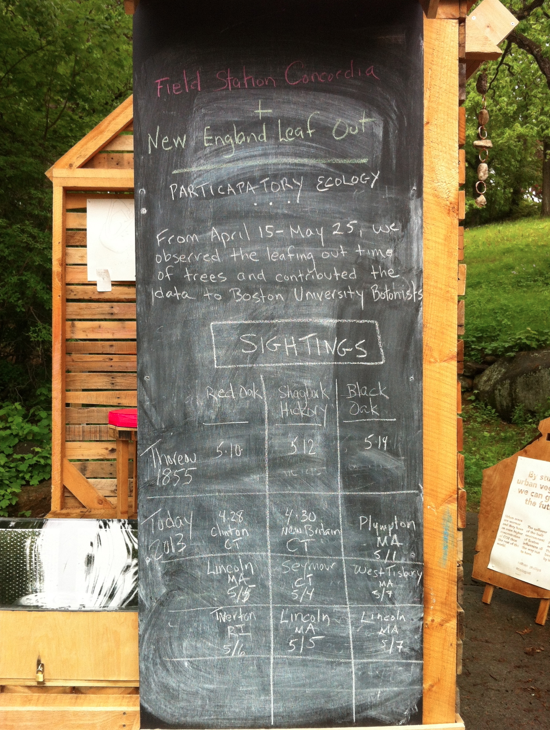 Field Station Concordia
+
New England Leaf Out
PARTICAPATORY ECOLOGY
...
From April 15-May 25, we
observed the leafing out time
of trees and contributed the
data to Boston Unversity Botonists
SIGHTINGS
Red Oak Shagbark Black
Hickory Oak
Thoreau 5.10 5.12 5.14
1855
Today 4.28 4.30 Plympton
2013 Clinton New Britain MA
CT CT 5/1
Lincoln Seymour West Tisbury
MA CT MA
5/5 5/4 5/7
Tiverton Lincoln Lincoln
RI MA MA
5/6 5/5 5/7
urban
we can
the fut